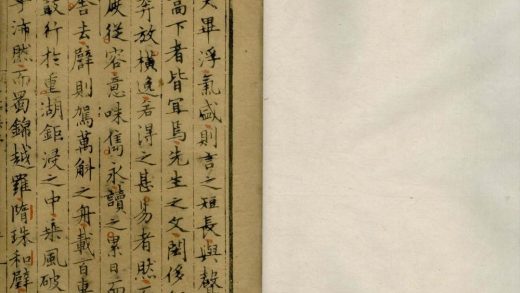 畢浮氣盛則言之短長與聲
高下者皆宜焉先生之文閎侈
奔放橫逸若得之甚易者然
厥從容意味雋永讀之累日而
舍去辟則駕萬斛之舟載百
行於重湖鉅浸之中乘風破
沛然而蜀錦越羅隋珠和璧